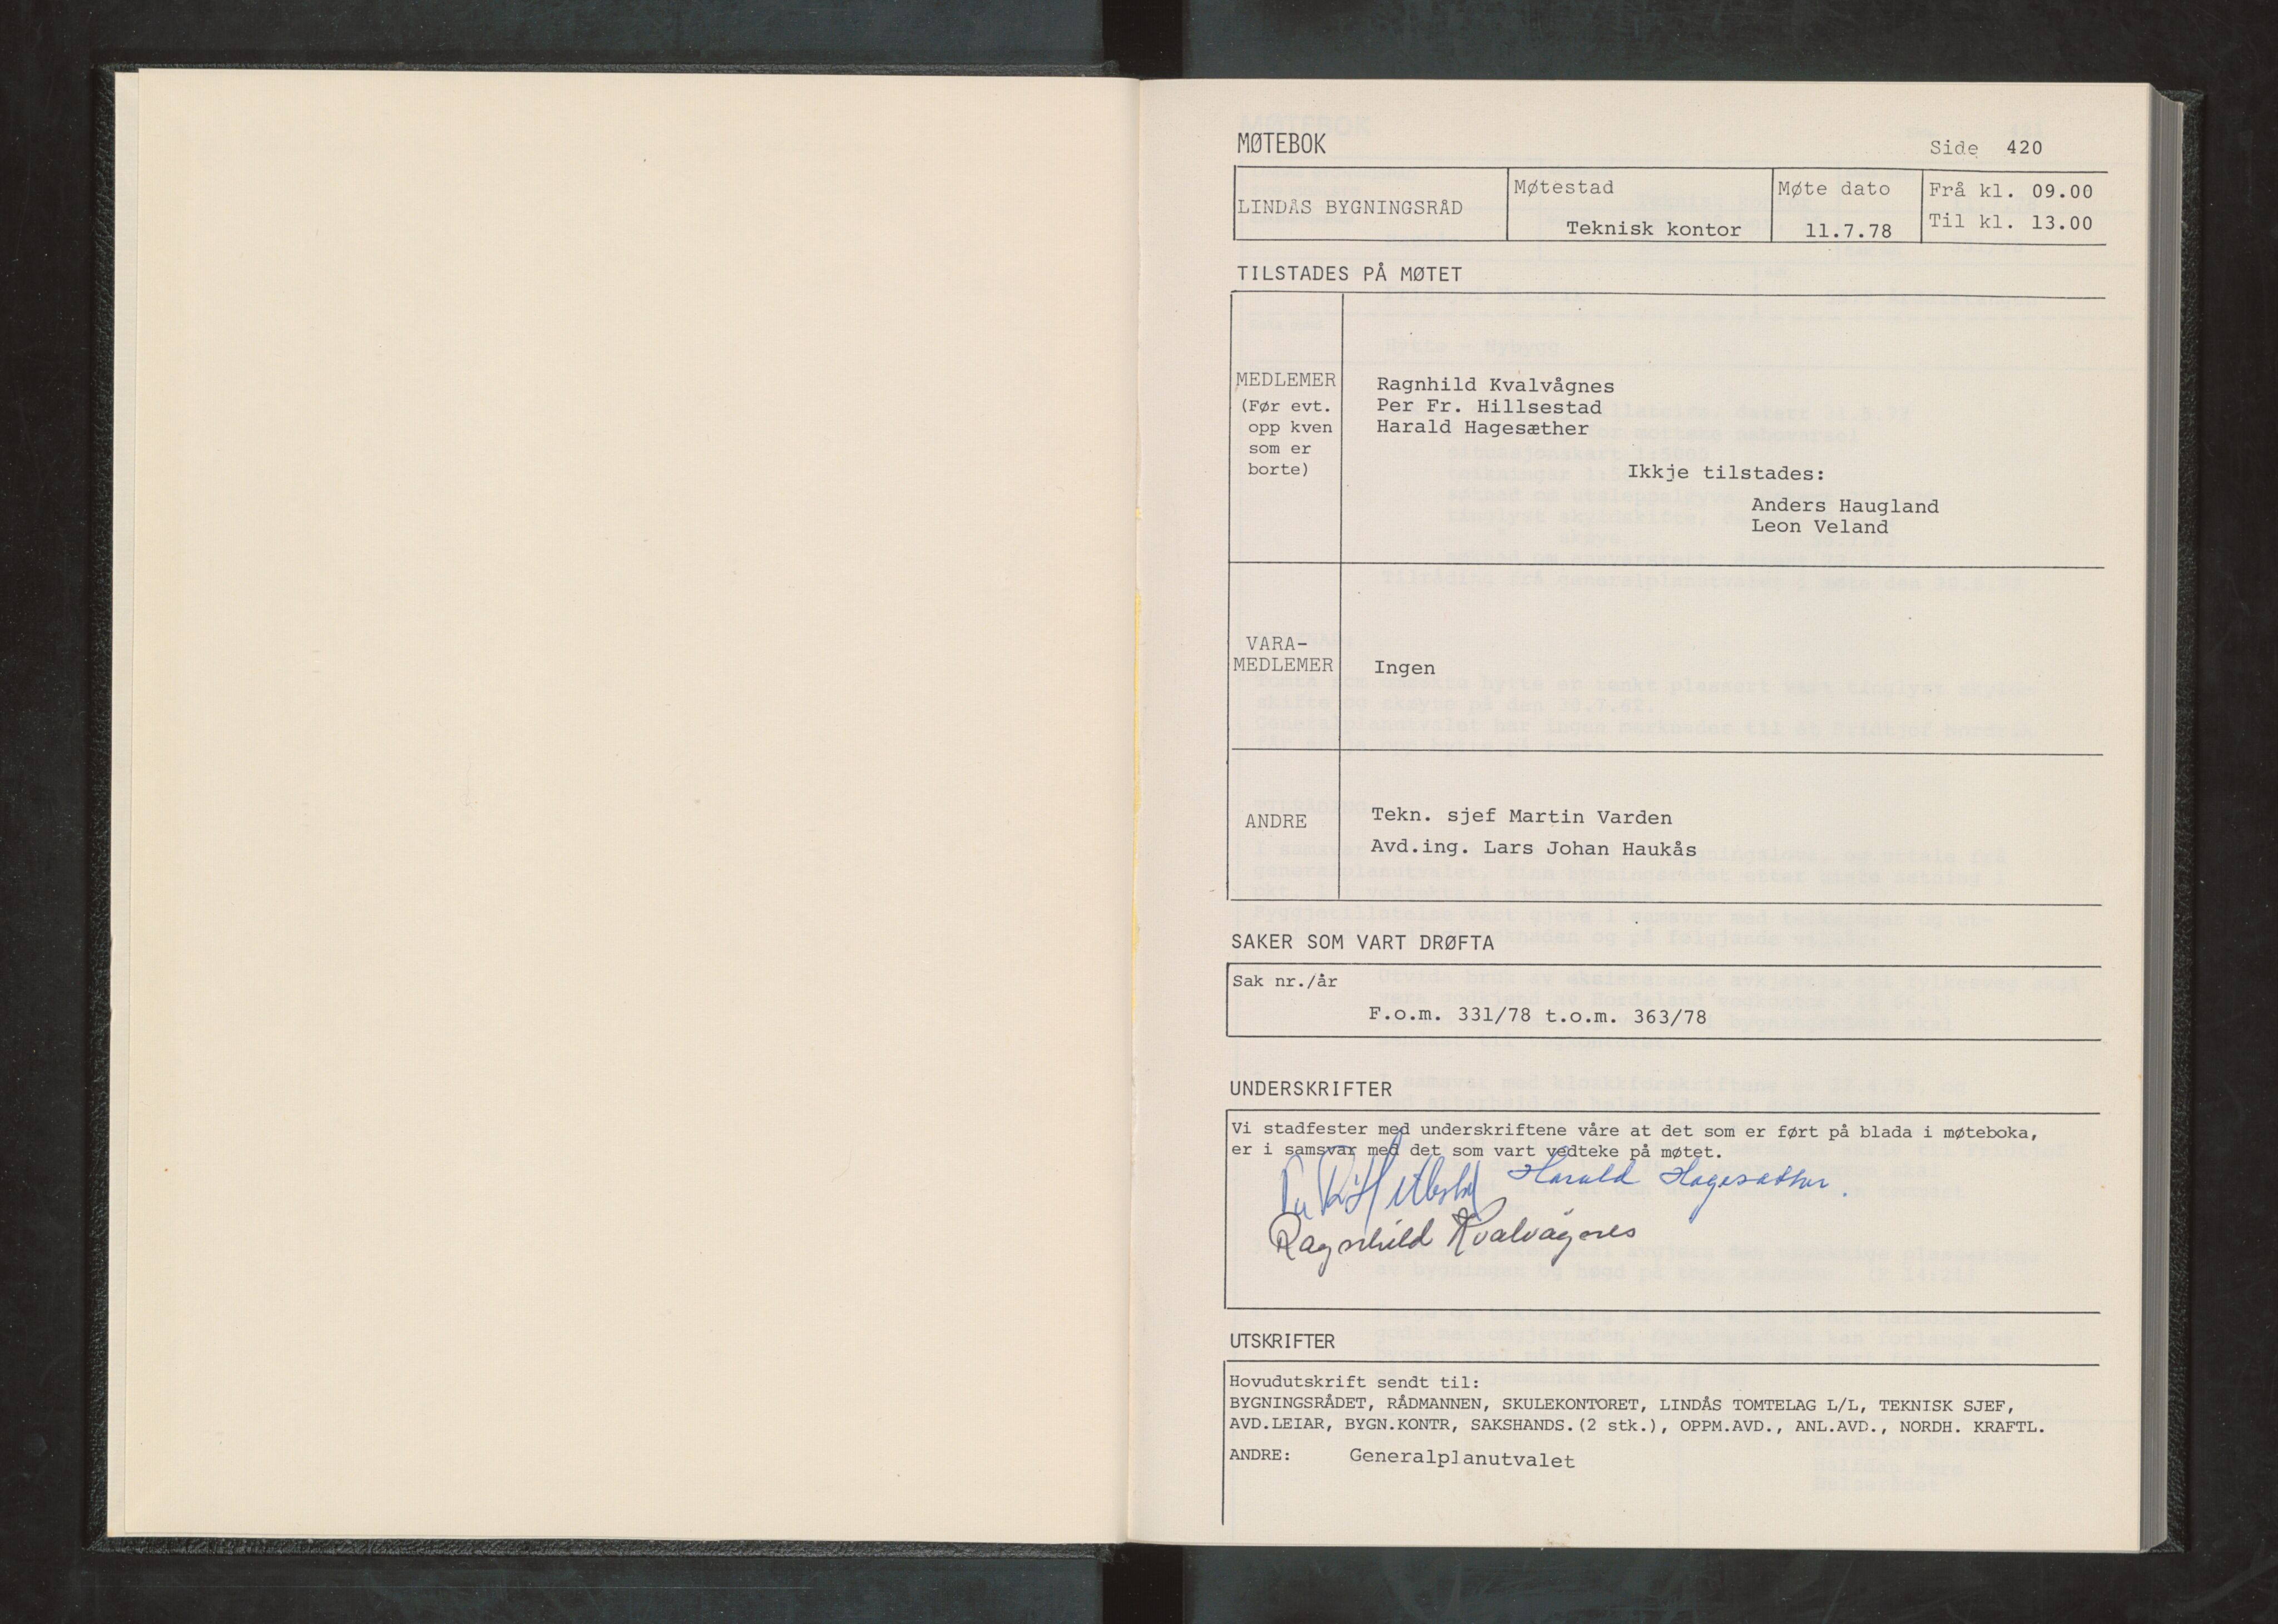 MØTEBOK
Side 420
LINDÅS BYGNINGSRÅD
Møtestad
Teknisk kontor
Møte dato
11.7.78
Frå kl. 09.00
Til kl. 13.00
TILSTADES PÅ MØTET
MEDLEMER
(Før evt.
opp kven
som er
borte)
Ragnhild Kvalvågnes
Per Fr. Hillsestad
Harald Hagesæther
Ikkje tilstades:
Anders Haugland
Leon Veland
VARA-
MEDLEMER
Ingen
ANDRE
Tekn. sjef Martin Varden
Avd.ing. Lars Johan Haukås
SAKER SOM VART DRØFTA
Sak nr./år
F.o.m. 331/78 t.o.m. 363/78
UNDERSKRIFTER
Vi stadfester med underskriftene våre at det som er ført på blada i møteboka,
er i samsvar med det som vart vedteke på møtet.
Harald Hagesæther.
Ragnhild Kvalvågnes
UTSKRIFTER
Hovudutskrift sendt til:
BYGNINGSRÅDET, RÅDMANNEN, SKULEKONTORET, LINDÅS TOMTELAG L/L, TEKNISK SJEF,
AVD.LEIAR, BYGN.KONTR, SAKSHANDS.(2 stk.), OPPM.AVD., ANL.AVD., NORDH. KRAFTL.
ANDRE: Generalplanutvalet